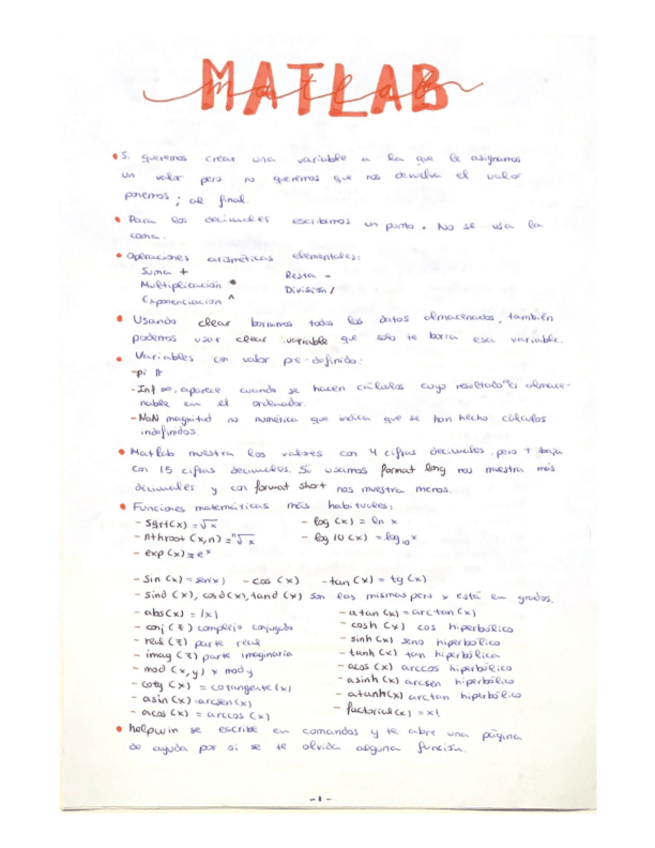 MATLAB
matlab
• Si queremos crear una variable a la que le asignamos
un valor pero no queremos que nos devuelva el valor
ponemos ; al final.
• Para los decimales escribimos un punto . No se usa la
coma.
• Operaciones aritméticas elementales:
Suma + Resta -
Multiplicación * División /
Exponenciación ^
• Usando clear borramos todos los datos almacenados, también
podemos usar clear variable que solo te borra esa variable.
• Variables con valor pre-definido:
-pi π
-Inf ∞, aparece cuando se hacen cálculos cuyo resultado es almace-
nable en el ordenador.
-NaN magnitud no numérica que indica que se han hecho cálculos
indefinidos.
• Matlab muestra los valores con 4 cifras decimales, pero trabaja
con 15 cifras decimales. Si usamos format long nos muestra más
decimales y con format short nos muestra menos.
• Funciones matemáticas más habituales:
- sqrt(x) = √x - log (x) = ln x
- nthroot (x,n) = ⁿ√x - log 10 (x) = log₁₀ x
- exp (x) = eˣ
- Sin (x) = sen(x) - cos (x) - tan (x) = tg (x)
- sind (x), cosd(x), tand (x) son las mismas pero x está en grados.
- abs(x) = |x| - atan (x) = arctan (x)
- conj (z) complejo conjugado - cosh (x) cos hiperbólico
- real (z) parte real - sinh (x) seno hiperbólico
- imag (z) parte imaginaria - tanh (x) tan hiperbólica
- mod (x,y) x mod y - acos (x) arccos hiperbólico
- cotg (x) = cotangente (x) - asinh (x) arcsen hiperbólico
- asin (x) = arcsen(x) - atanh(x) arctan hiperbólico
- acos (x) = arccos (x) - factorial (x) = x!
• helpwin se escribe en comandos y te abre una página
de ayuda por si se te olvida alguna función.
-1-